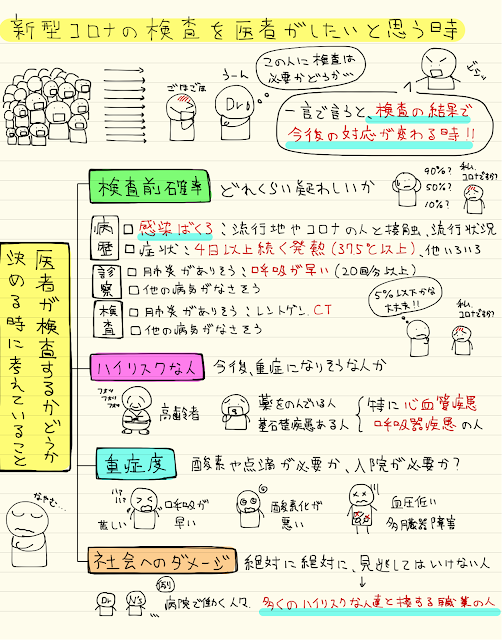 新型コロナの検査を医者がしたいと思う時
ごほごほ
うーん
Dr
この人に検査は
必要かどうか…
ビシッ
一言で言うと、検査の結果で
今後の対応が変わる時!!
医者が検査するかどうか
決める時に考えていること
なやむ…
検査前確率 どれくらい疑わしいか
90%?
50%?
10%?
私、
コロナですか?
病歴
□感染ばくろ:流行地やコロナの人と接触、流行状況
□症状:4日以上続く発熱(37.5℃以上)、他いろいろ
診察
□肺炎がありそう:呼吸が早い(20回/分以上)
□他の病気がなさそう
検査
□肺炎がありそう:レントゲン、CT
□他の病気がなさそう
5%以下かな
大丈夫!!
私、
コロナですか?
ハイリスクな人 今後、重症になりそうな人か
高齢者
薬をのんでいる人
基礎疾患ある人
特に心血管疾患
呼吸器疾患の人
重症度 酸素や点滴が必要か、入院が必要か?
ハァ
ハァ
苦しい
呼吸が
早い
酸素化が
悪い
血圧低い
多臓器障害
社会へのダメージ 絶対に絶対に、見逃してはいけない人
Dr
N's
(例)
病院で働く人々、多くのハイリスクな人達と接する職業の人